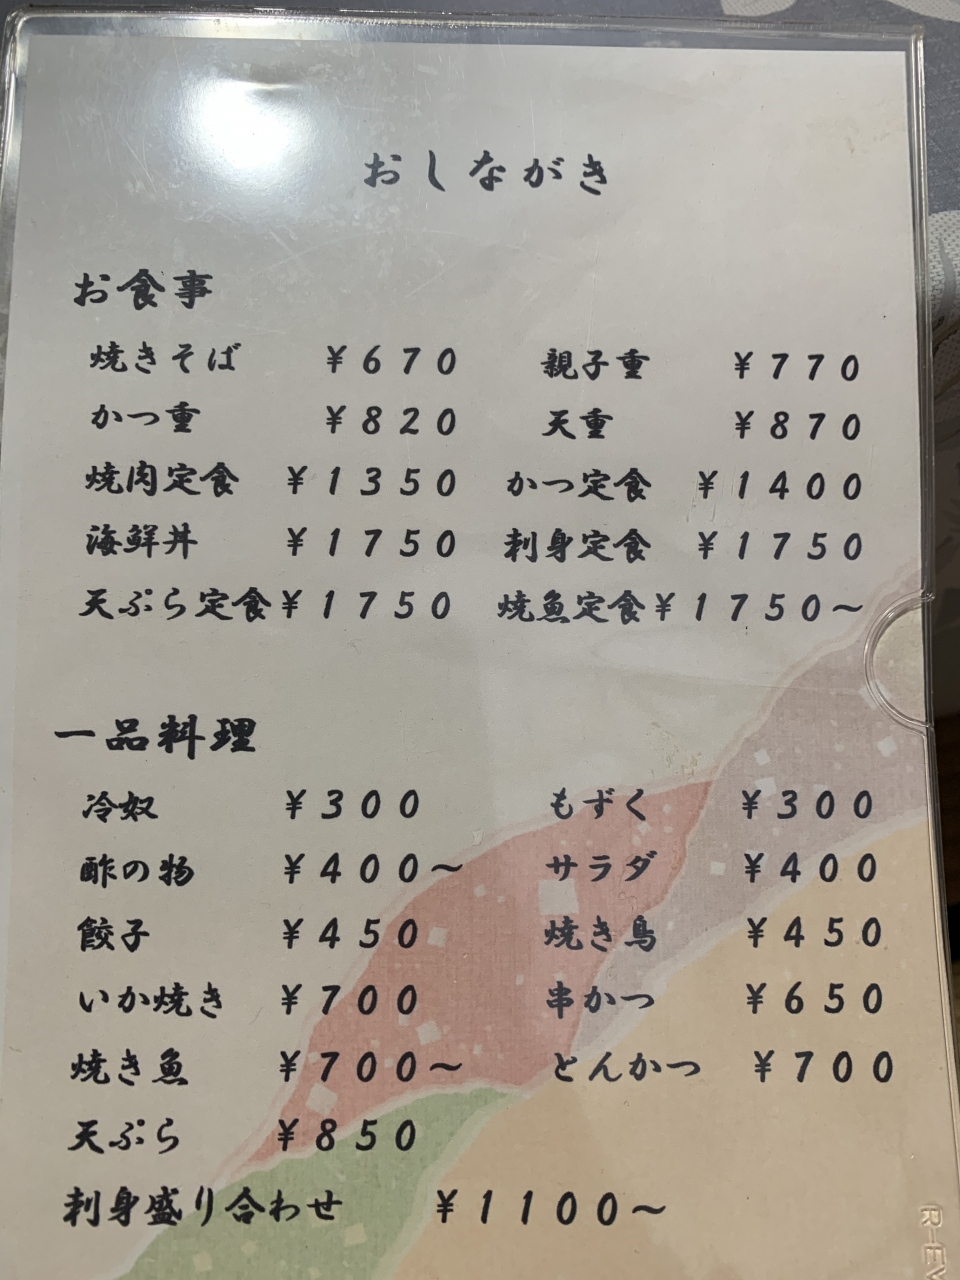 おしながき
お食事
焼きそば ¥670 親子重 ¥770
かつ重 ¥820 天重 ¥870
焼肉定食 ¥1350 かつ定食 ¥1400
海鮮丼 ¥1750 刺身定食 ¥1750
天ぷら定食 ¥1750 焼魚定食 ¥1750～
一品料理
冷奴 ¥300 もずく ¥300
酢の物 ¥400～ サラダ ¥400
餃子 ¥450 焼き鳥 ¥450
いか焼き ¥700 串かつ ¥650
焼き魚 ¥700～ とんかつ ¥700
天ぷら ¥850
刺身盛り合わせ ¥1100～